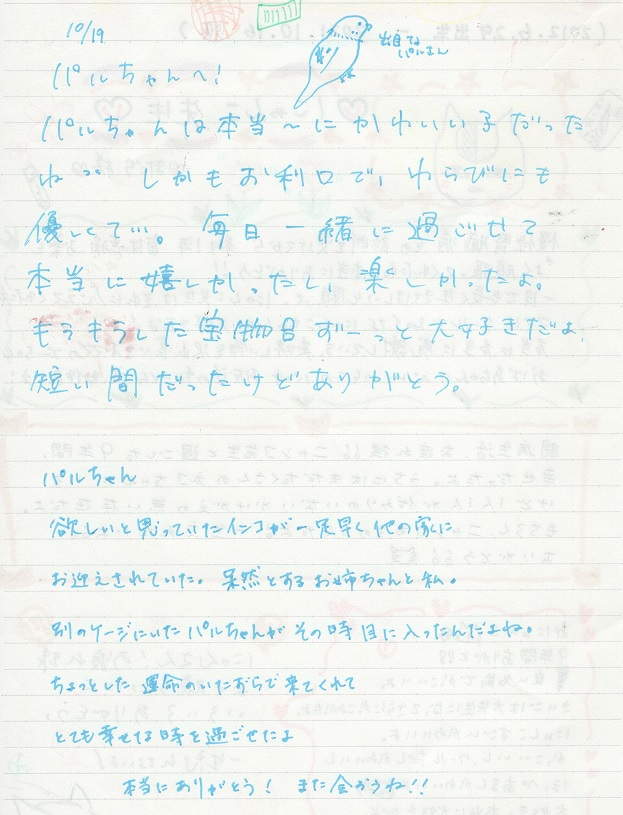 10/19
出目でねパルさん
パルちゃんへ!
パルちゃんは本当〜にかわいい子だった
ね。しかもお利口で、わらびにも
優しくて…。毎日一緒に過ごせて
本当に嬉しかったし、楽しかったよ。
もうもうした宝物 ずーっと大好きだよ、
短い間だったけどありがとう。
パルちゃん
欲しいと思っていたインコが一足早く他の家に
お迎えされていた。呆然とするお姉ちゃんと私。
別のケージにいたパルちゃんがその時目に入ったんだよね。
ちょっとした運命のいたずらで来てくれて
とても幸せな時を過ごせたよ
本当にありがとう! また会おうね!!